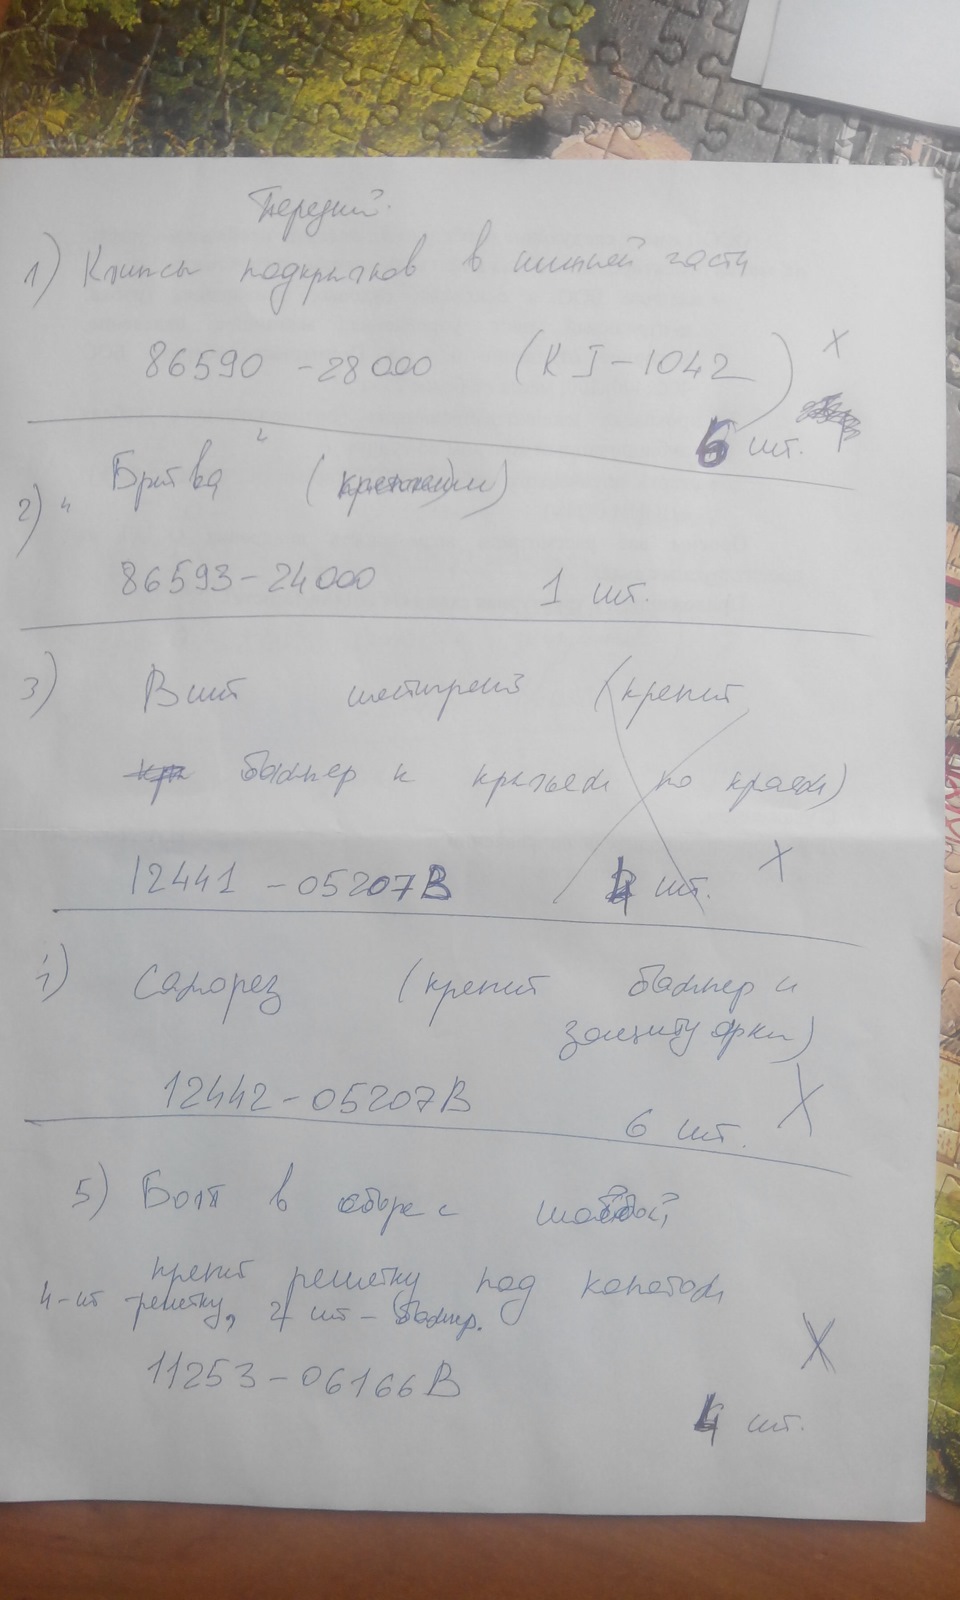 Передний.
1) Клипсы подкрылков в нижней части
86590 - 28000 (KJ-1042) X
6 шт.
2) "Бритва"
86593-24000 1 шт.
3) Винт шестигран (крепит
бампер к крыльям по краям)
12441 - 05207B 4 шт. X
4) Саморез (крепит бампер и
защиту арки)
12442-05207B X
6 шт.
5) Болт в сборе с шайбой
крепит решетку под капотом
4-шт решетку, шт - бампер.
11253-06166B X
4 шт.